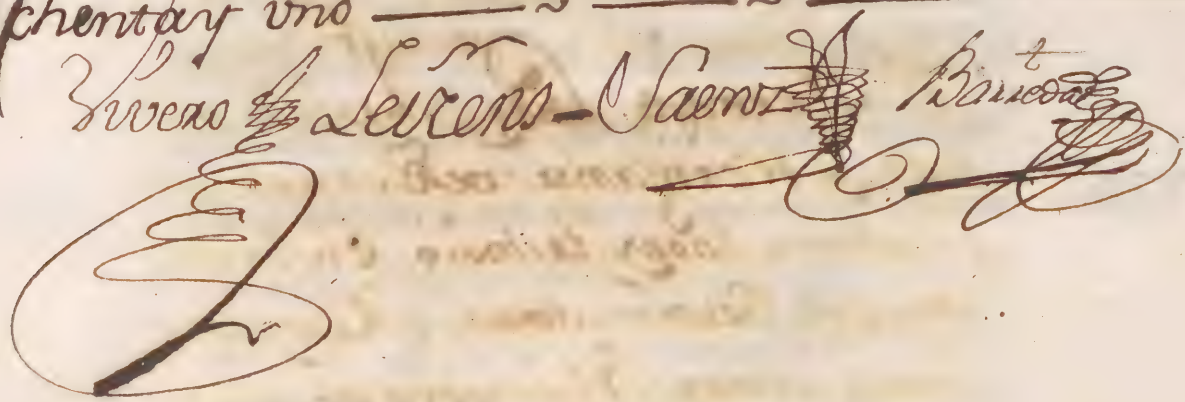 chentay vno
Vivero Leirens Saenz Barreda